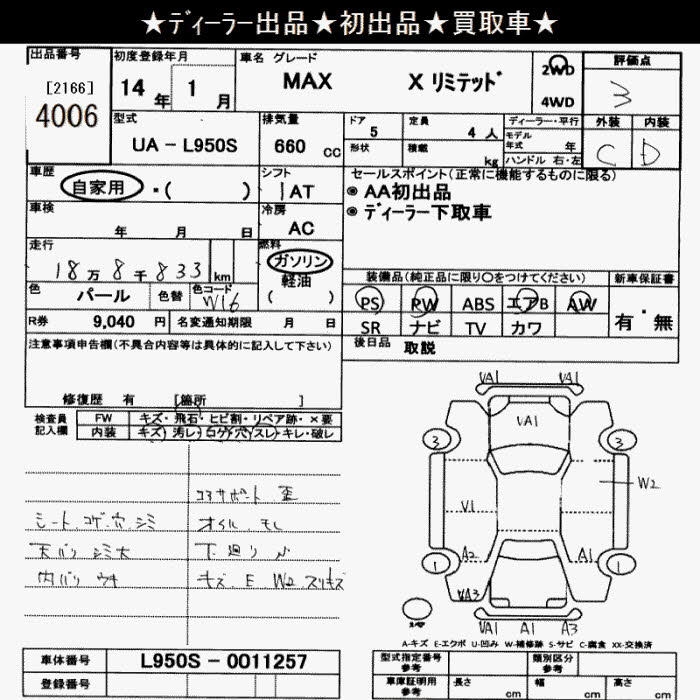 ★ディーラー出品★初出品★買取車★
出品番号
[2166]
4006
初度登録年月
14 年 1 月
車名 グレード
MAX X リミテッド
2WD
4WD
評価点
3
型式
UA - L950S
排気量
660 cc
ドア 5
定員 4 人
形状
積載 kg
ディーラー・平行
モデル年式 年
ハンドル 右・左
外装 内装
C D
車歴
自家用 ・( )
シフト
IAT
セールスポイント(正常に機能するものに限る)
◉ AA初出品
◉ ディーラー下取車
車検
年 月 日
冷房
AC
走行
18万 8千 833 km
燃料
ガソリン
軽油
( )
装備品(純正品に限り○をつけてください)
新車保証書
PS PW ABS エアB AW
SR ナビ TV カワ
有・無
色 パール
色替
色コード W16
R券 9,040 円
名変通知期限 月 日
後日品 取説
注意事項申告欄(不具合内容等は具体的に記入して下さい)
修復歴 有 [箇所 ]
検査員記入欄
FW キズ・飛石・ヒビ割・リペア跡・×要
内装 キズ・汚レ・コゲ・穴・スレ・キレ・破レ
コアサポート 歪
シート コゲ.穴.シミ
オイル モレ
天バリ シミ大
下廻り
内バリ ウキ
キズ E W2 スリキズ
VA1 VA1
VA1
3 3
W2
V1
A2 A1
1 1
VA3
VA1 A1 A3
A-キズ E-エクボ U-凹み W-補修跡 S-サビ C-腐食 XX-交換済
車体番号 L950S - 0011257
登録番号
型式指定番号 参考
類別区分 参考
車庫証明用 参考
長さ cm
幅 cm
高さ cm